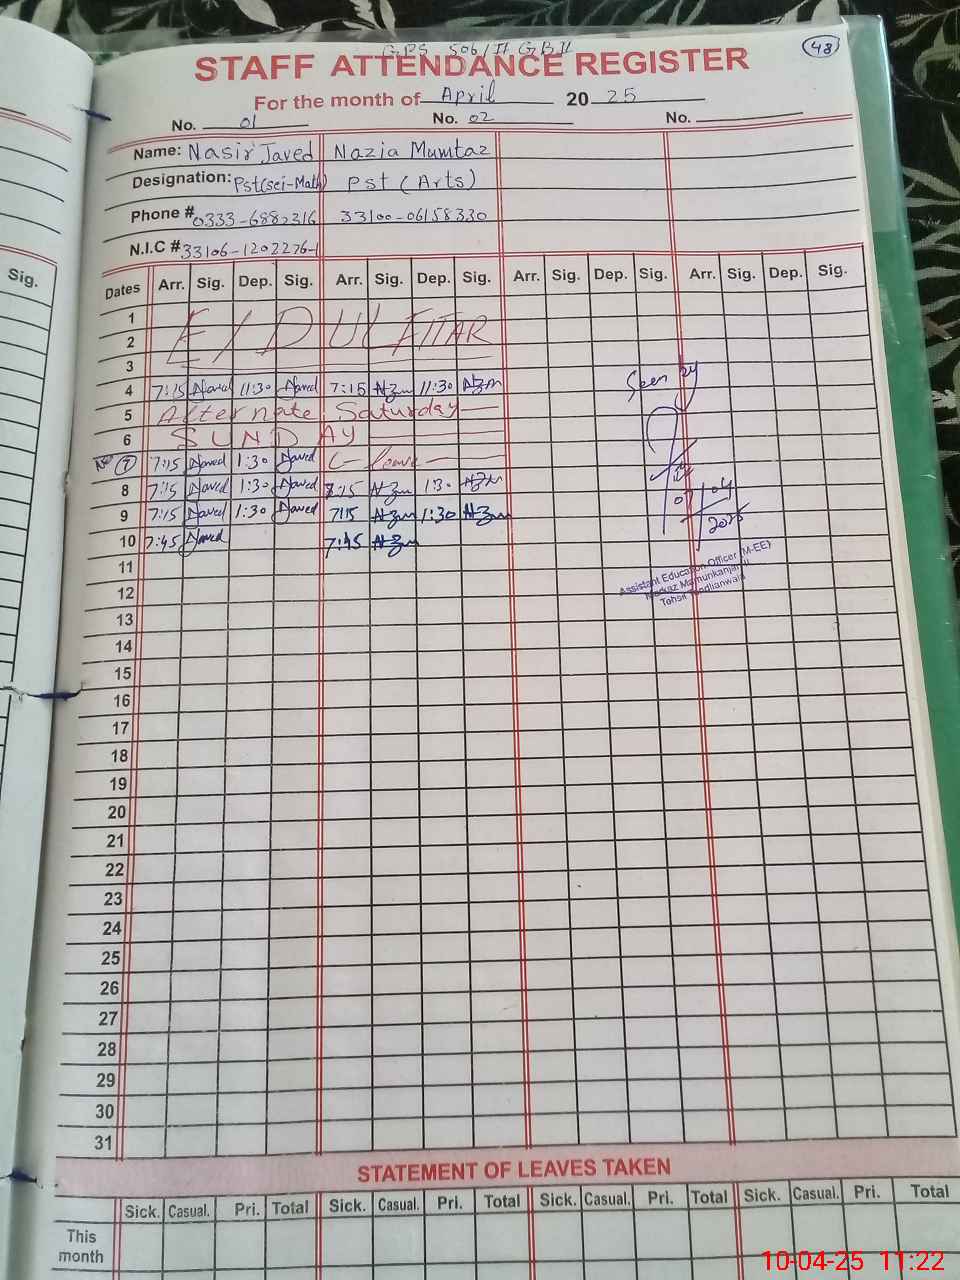 GPS 506/II GBII
48
STAFF ATTENDANCE REGISTER
For the month of April 2025
No. 01 No. 02 No.
Name: Nasir Javed Nazia Mumtaz
Designation: Pst(sci-Math) Pst (Arts)
Phone # 0333-6882316 33100-06158330
N.I.C # 33106-1202276-1
Sig.
Dates Arr. Sig. Dep. Sig. Arr. Sig. Dep. Sig. Arr. Sig. Dep. Sig. Arr. Sig. Dep. Sig.
1
2 EID UL FITAR
3
4 7:15 Javed 11:30 Javed 7:15 11:30
Seen by
5 Alternate Saturday
6 SUNDAY
7 7:15 Javed 1:30 Javed C- leave
8 7:15 Javed 1:30 Javed 7:15 1:30
9 7:15 Javed 1:30 Javed 7:15 1:30
07/04
2025
10 7:45 Javed 7:45
11
Assistant Education Officer (M-EE)
Markaz Mamunkanjan
Tehsil Tandlianwala
12
13
14
15
16
17
18
19
20
21
22
23
24
25
26
27
28
29
30
31
STATEMENT OF LEAVES TAKEN
Sick. Casual. Pri. Total Sick. Casual. Pri. Total Sick. Casual. Pri. Total Sick. Casual. Pri. Total
This
month
10-04-25 11:22